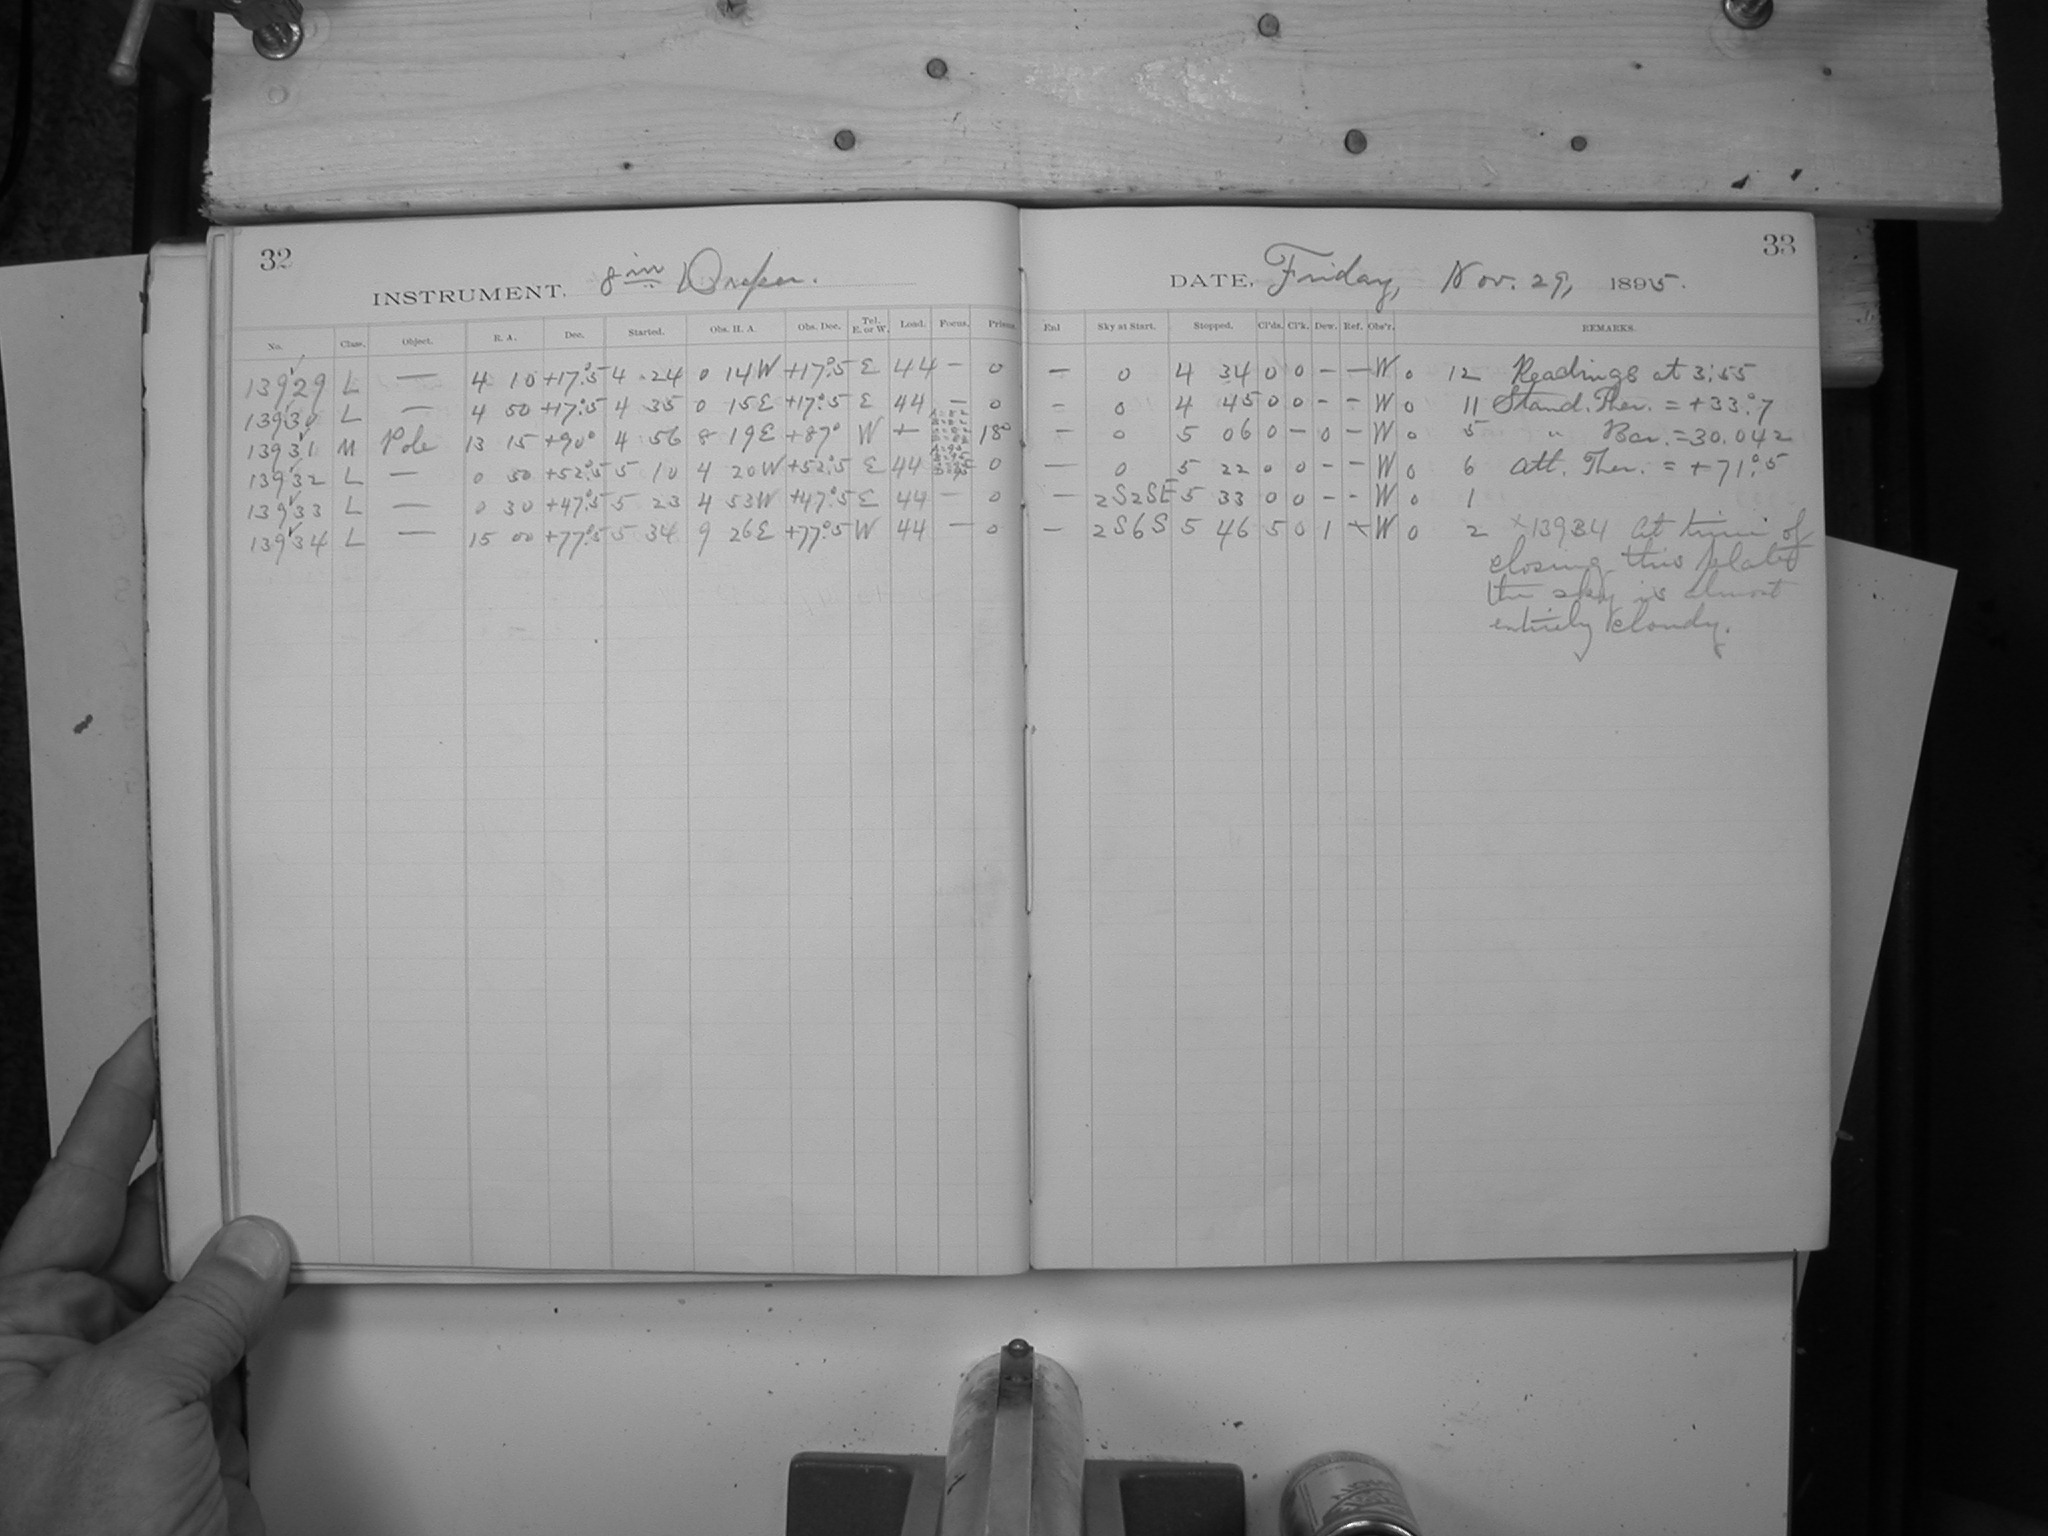 32
INSTRUMENT. 8 in Draper.
No. Class. Object. R. A. Dec. Started. Obs. H. A. Obs. Dec. Tel. E. or W. Load. Focus. Prisms.
13929 L — 4 10 +17°.5 4 24 0 14W +17°.5 E 44 — 0
13930 L — 4 50 +17°.5 4 35 0 15E +17°.5 E 44 — 0
13931 M Pole 13 15 +90° 4 56 8 19E +87° W — 18°
13932 L — 0 50 +52°.5 5 10 4 20W +52°.5 E 44 0
13933 L — 0 30 +47°.5 5 23 4 53W +47°.5 E 44 — 0
13934 L — 15 00 +77°.5 5 34 9 26E +77°.5 W 44 — 0
33
DATE, Friday, Nov. 29, 1895.
Enl Sky at Start. Stopped. Cl'ds. Cl'k. Dew. Ref. Obs'r. REMARKS.
— 0 4 34 0 0 – — W 0 12 Readings at 3:55
– 0 4 45 0 0 – – W 0 11 Stand. Ther. = +33°.7
— 0 5 06 0 – 0 – W 0 5 " Bar. = 30.042
— 0 5 22 0 0 – – W 0 6 Att. Ther. = +71°.5
— 2S2SE 5 33 0 0 – – W 0 1
— 2S6S 5 46 5 0 1 × W 0 2 ×13934 At time of
closing this plate
the sky is almost
entirely cloudy.